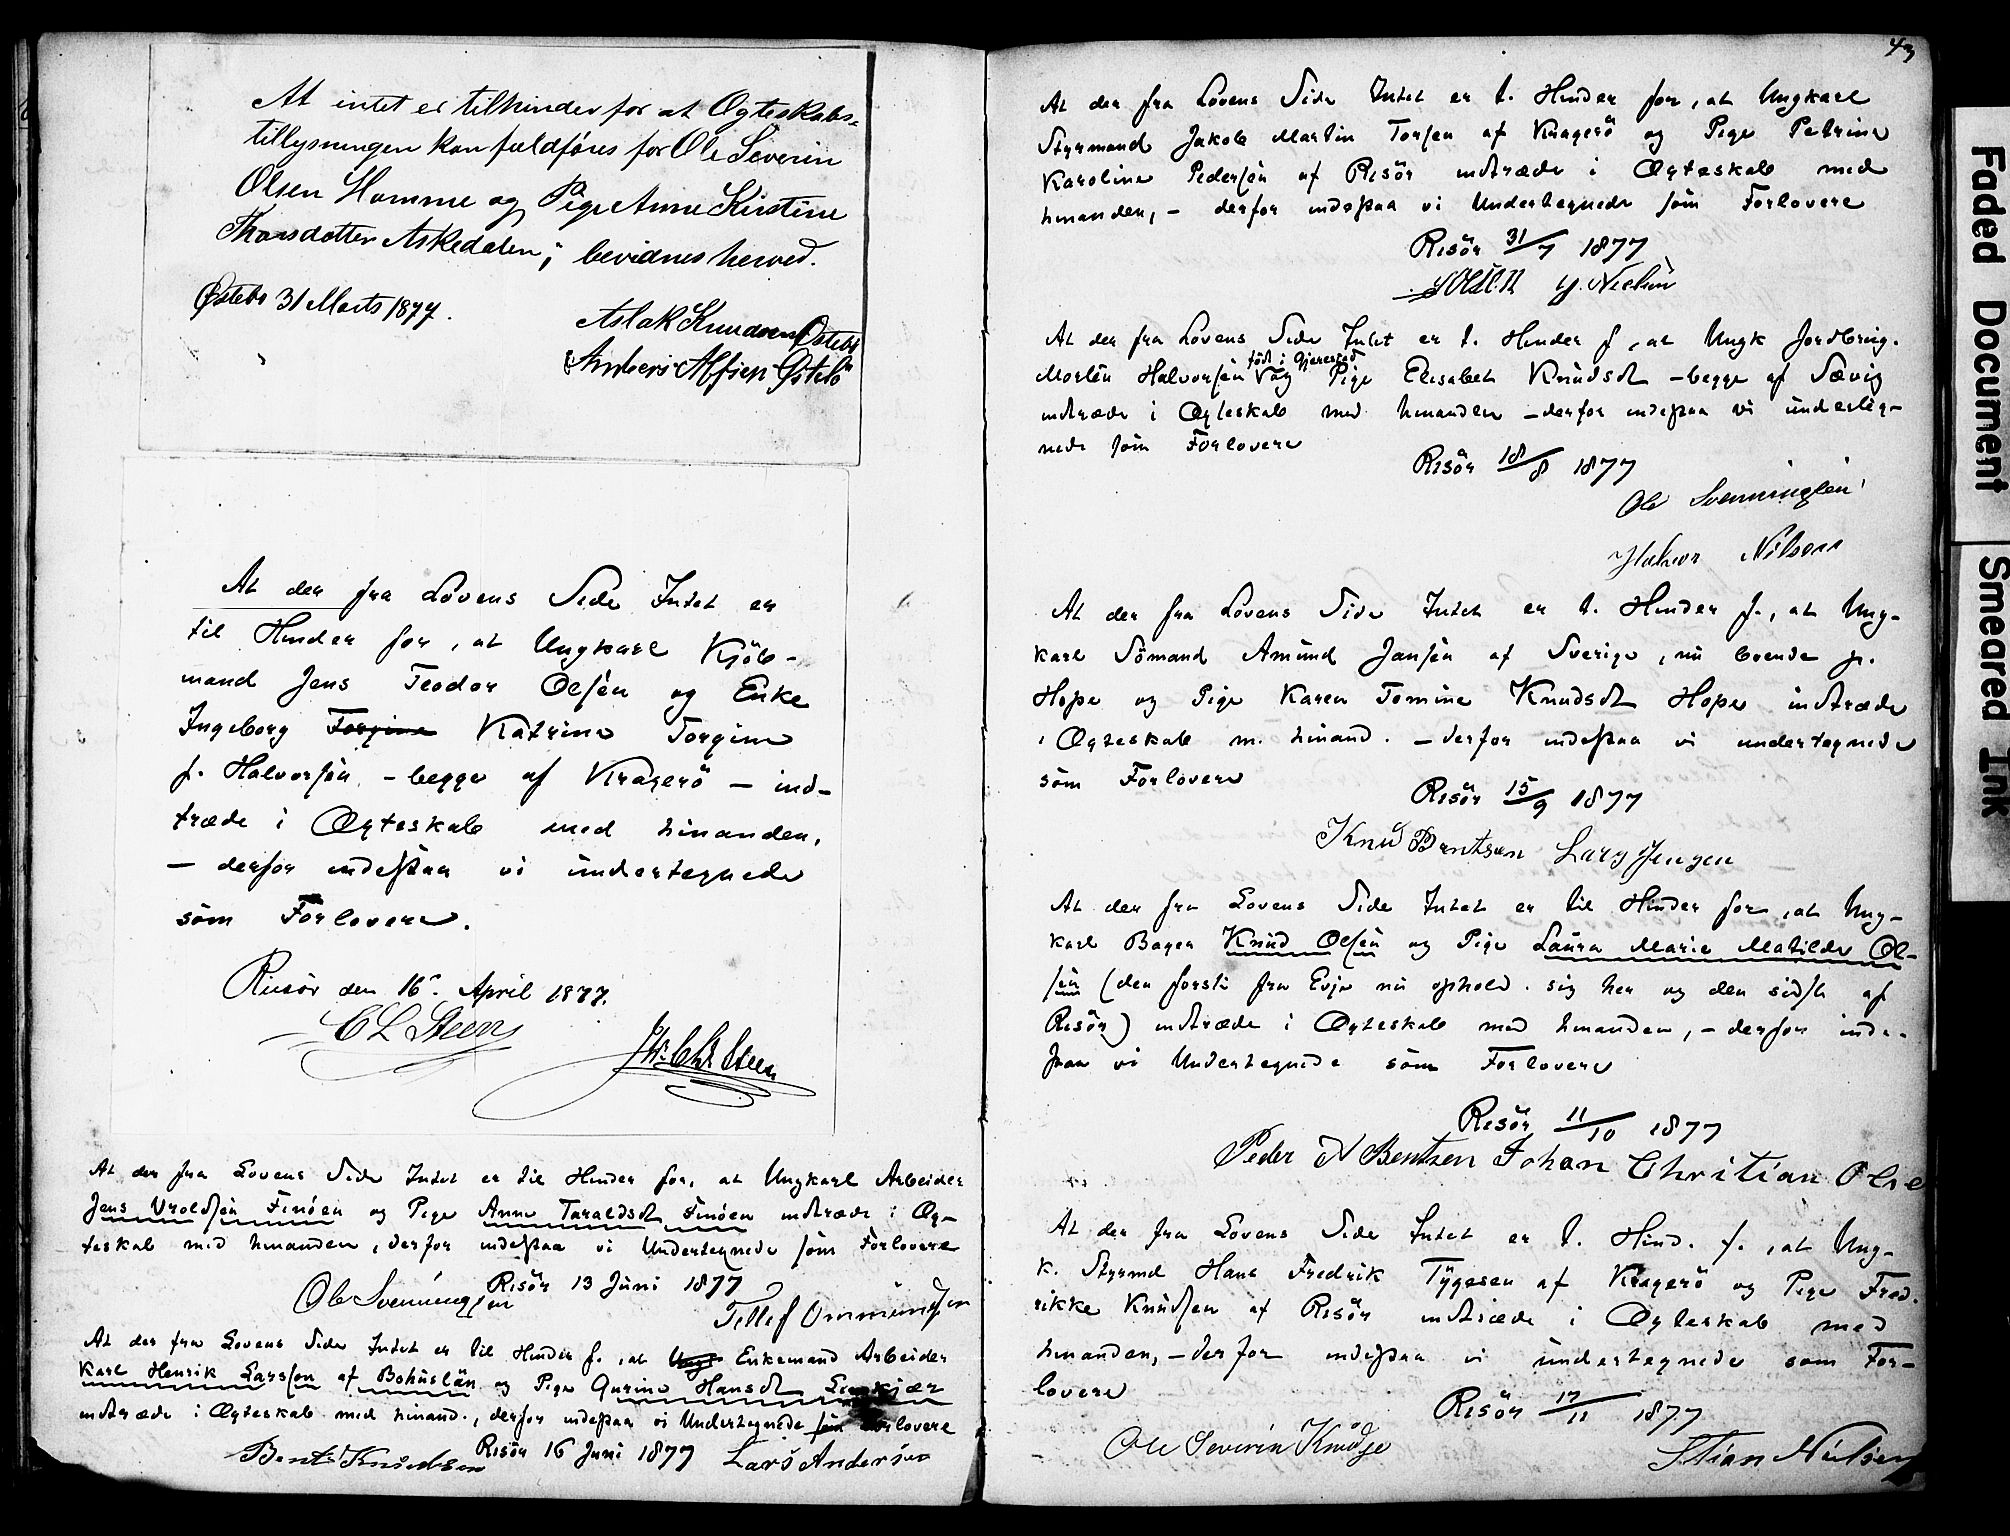 At intet er tilhinder for at Ægteskabs=
tillysningen kan fuldføres for Ole Severin
Olsen Homme og Pige Anne Kirstine
Thorsdatter Askedalen, bevidnes herved.
Østebø 31 Marts 1877.
Aslak Knudsen Østebø
Anders Alfsen Østebø
At der fra Lovens Side Intet er
til Hinder for, at Ungkarl Kjöb-
mand Jens Teodor Olsen og Enke
Ingeborg Torgine Katrine Torgine
f. Halvorsen - begge af Kragerö - ind-
træde i Ægteskab med hinanden,
- derfor indestaa vi undertegnede
som Forlovere.
Risör den 16. April 1877.
C L Steen
Chr. Steen
At der fra Lovens Side Intet er til Hinder for, at Ungkarl Arbeider
Jens Vroldsen Finöen og Pige Anne Taraldsdt Finöen indtræde i Æg-
teskab med hinanden, derfor indestaa vi Undertegnede som Forlovere
Risör 13 Juni 1877
Ole Svenningsen
Tellef Ommundsen
At der fra Lovens Side Intet er til Hinder f. at Ungk Enkemand Arbeider
Karl Henrik Larsson af Bohuslän og Pige Gurine Hansdt
indtræde i Ægteskab med hinand., derfor indestaa vi Undertegnede som Forlovere
Risör 16 Juni 1877
Bent Knudsen Lars Andersen
43
At der fra Lovens Side Intet er t. Hinder for, at Ungkarl
Styrmand Jakob Martin Torsen af Kragerö og Pige Petrine
Karoline Pedersen af Risör indtræde i Ægteskab med
hinanden, - derfor indestaa vi Undertegnede som Forlovere
Risör 31/7 1877
Nielsen
At der fra Lovens Side Intet er t. Hinder f, at Ungk Jordbrug.
Morten Halvorsen født i Gjerestad og Pige Elisabet Knudsdt - begge af Sævig
indtræde i Ægteskab med hinanden - derfor indestaa vi underteg-
nede som Forlovere
Risör 18/8 1877
Ole Svenningsen
Halvor Nilsen
At der fra Lovens Side Intet er t. Hinder f., at Ung-
karl Sömand Amund Jansen af Sverige, nu boende p.
Hope og Pige Karen Tomine Knudsdt Hope indtræde
i Ægteskab m. hinand. - derfor indestaa vi undertegnede
som Forlovere
Risör 15/9 1877
Knud Berntsen Lars Jensen
At der fra Lovens Side Intet er til Hinder for, at Ung-
karl Bager Knud Olsen og Pige Laura Marie Matilde Ol-
sen (den forste fra Evje nu ophold. sig her og den sidste af
Risör) indtræde i Ægteskab med hinanden, - derfor inde-
staa vi Undertegnede som Forlovere
Risör 11/10 1877
Peder N Bentzen Johan Chritian Olse
At der fra Lovens Side Intet er t. Hind. f., at Ung-
k. Styrmd Hans Fredrik Tygesen af Kragerö og Pige Fred.
rikke Knudsen af Risör indtræde i Ægteskab med
hinanden, - derfor indestaa vi undertegnede som For-
lovere
Risör 17/11 1877
Ole Severin
Stian Nielsen
Faded Document
Smeared Ink